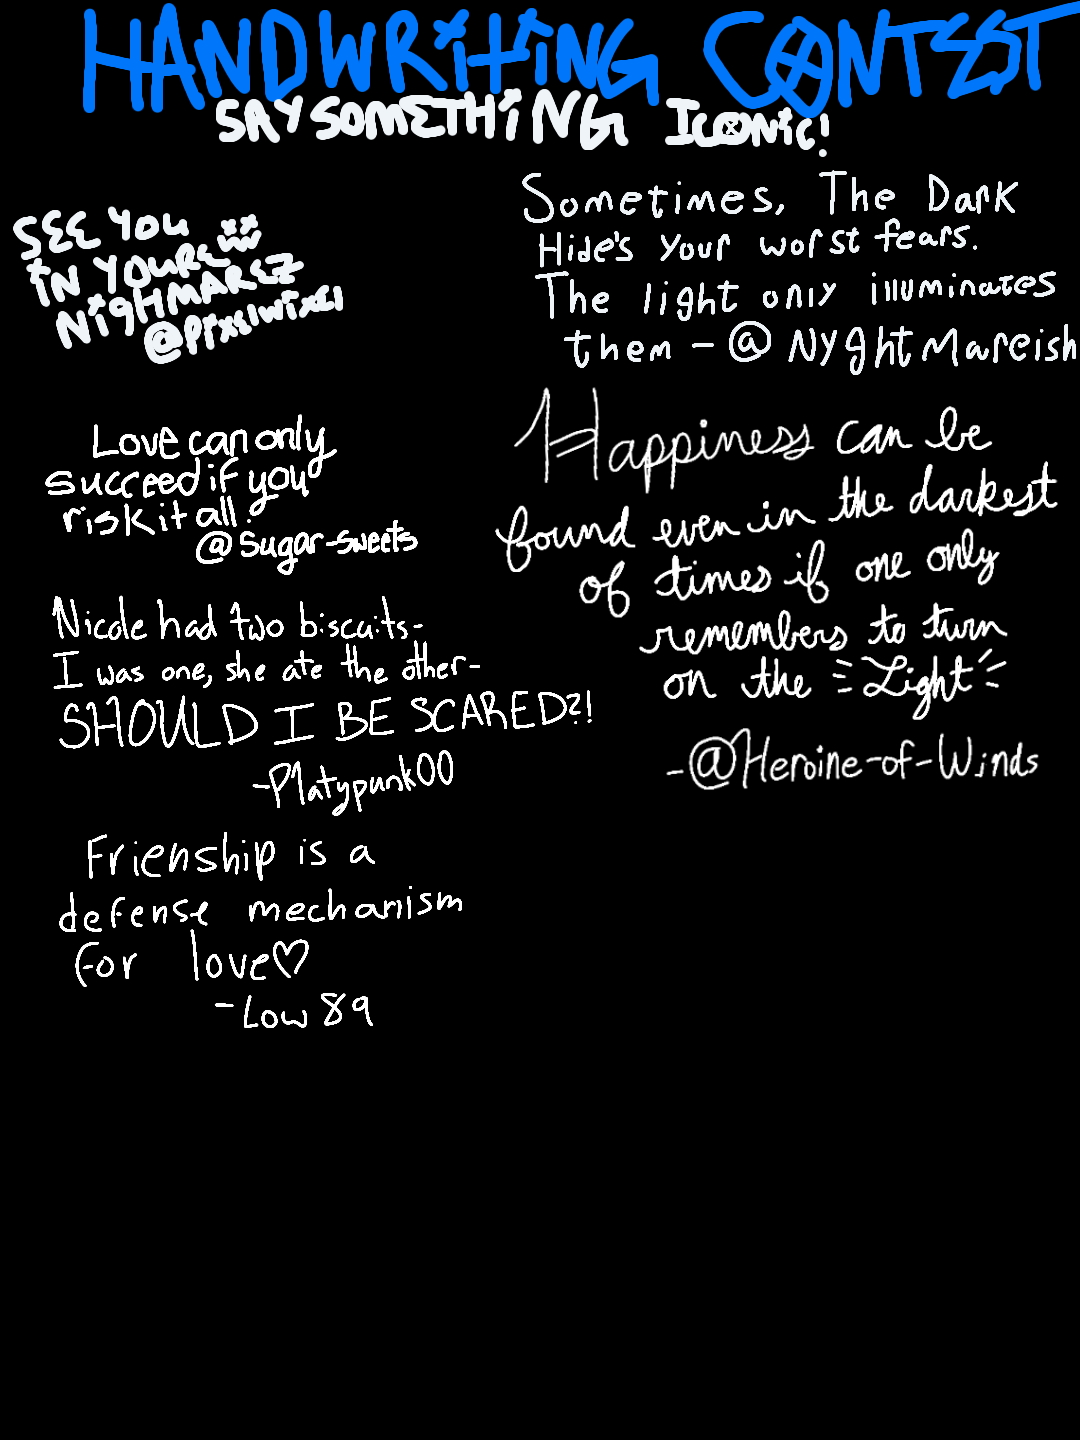 HANDWRITING CONTEST
SAY SOMETHING ICONIC!
SEE YOU
IN YOURE
NIGHMAREZ
@prxslwixsl
Love can only
succeed if you
risk it all.
@Sugar-sweets
Nicole had two biscuits-
I was one, she ate the other-
SHOULD I BE SCARED?!
-Platypunk00
Frienship is a
defense mechanism
for love♡
-Low89
Sometimes, The Dark
Hide's your worst fears.
The light only illuminates
them - @NyghtMareish
Happiness can be
found even in the darkest
of times if one only
remembers to turn
on the Light
-@Heroine-of-Winds